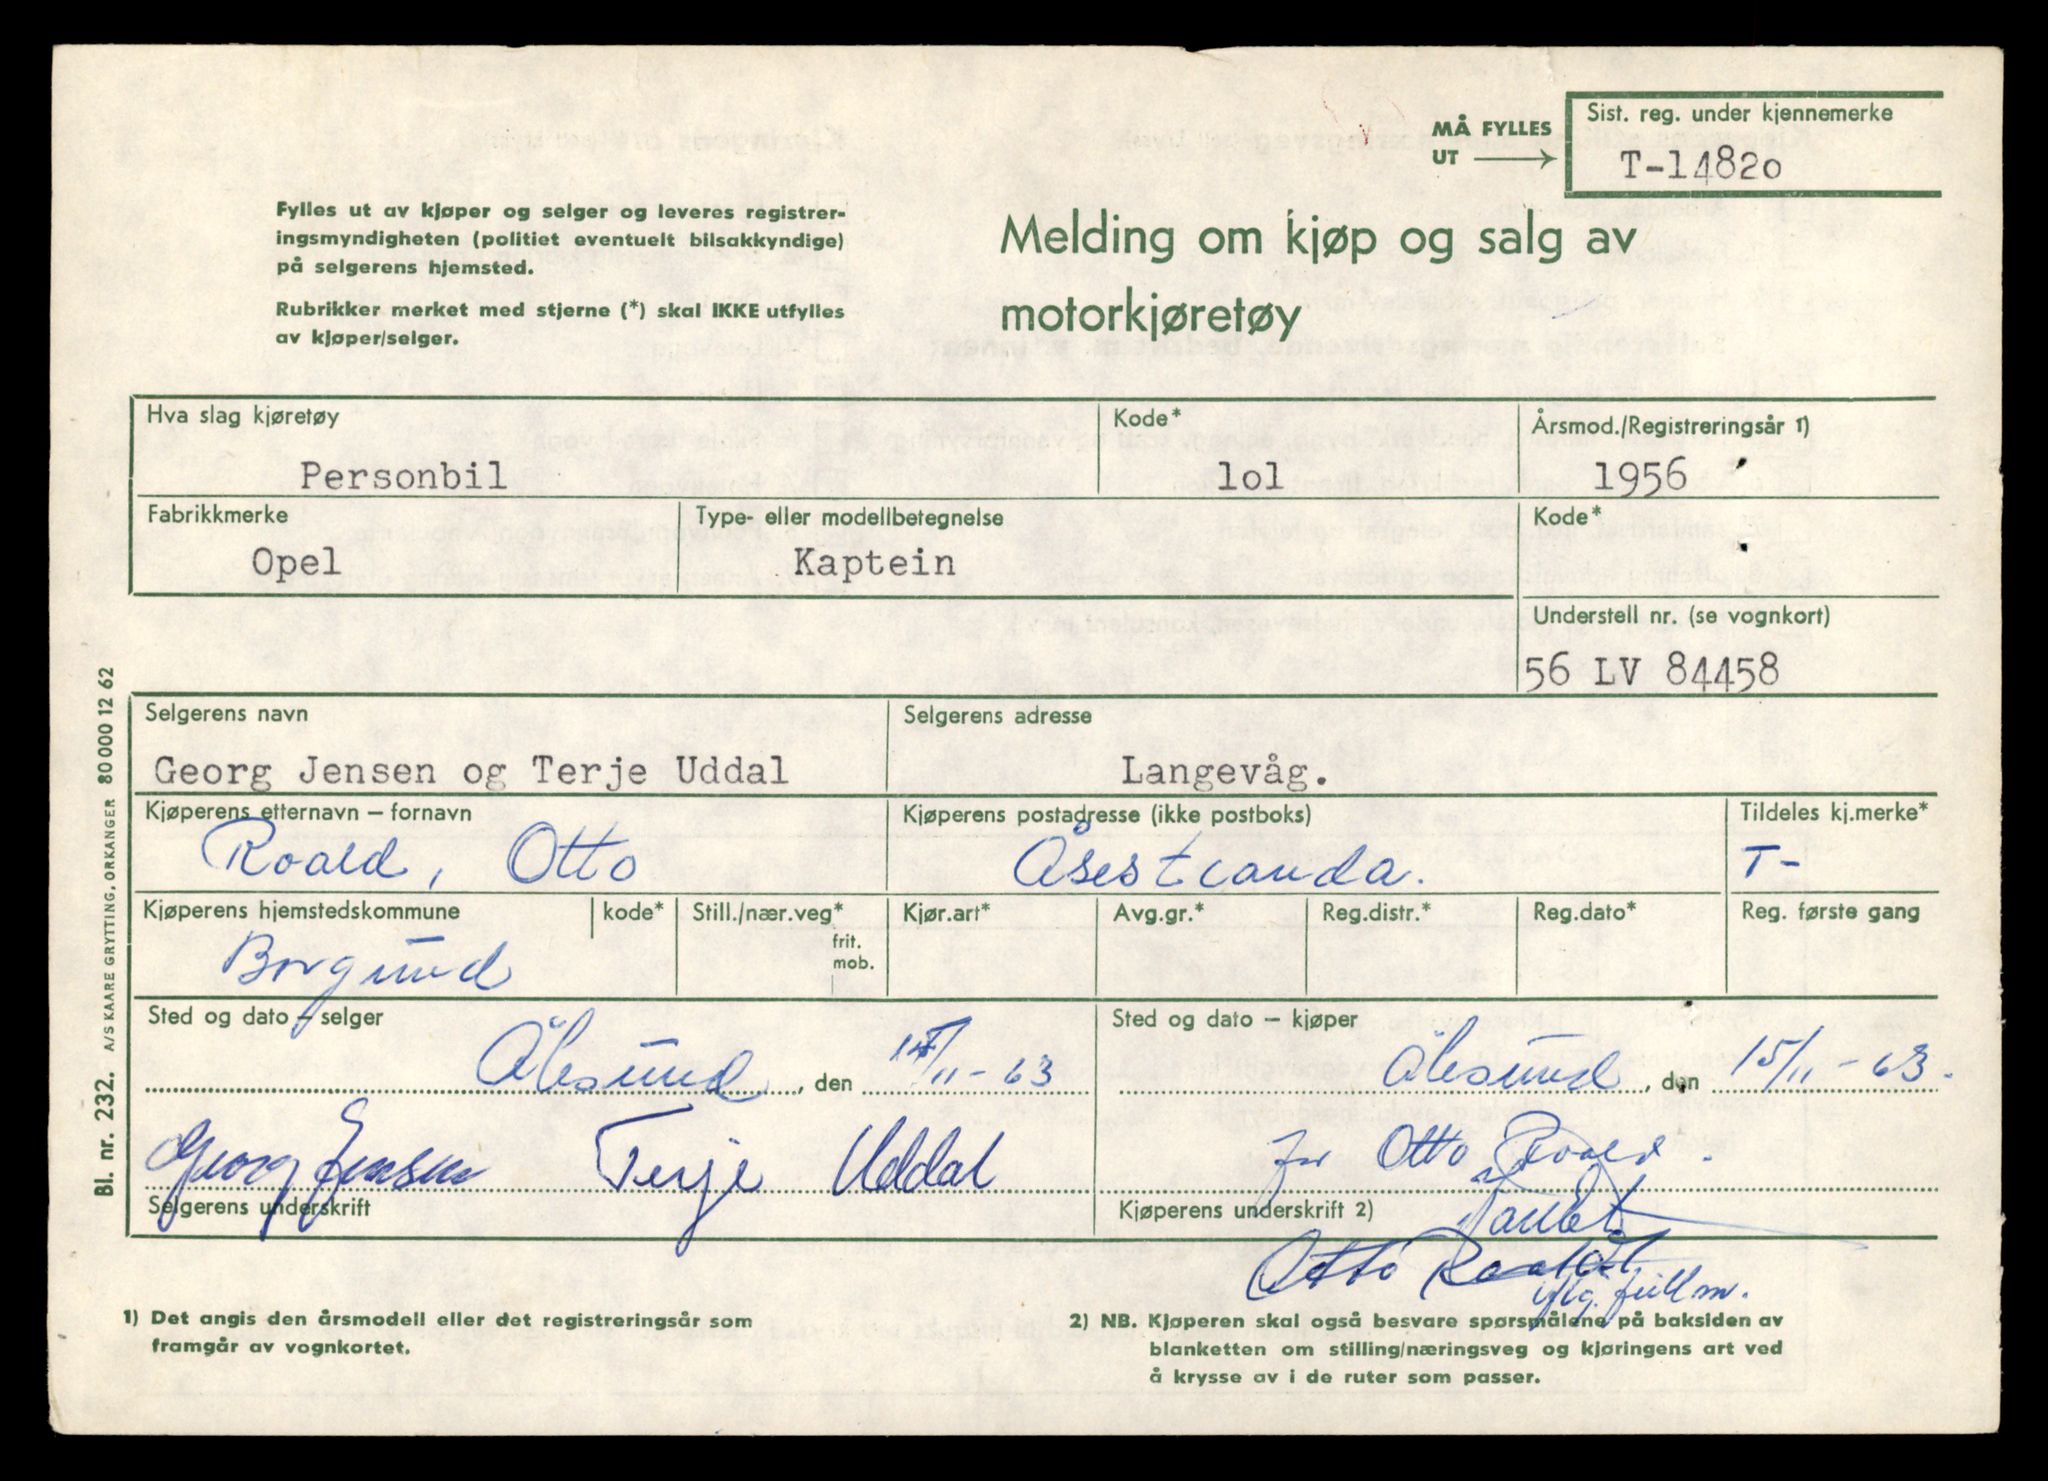 MÅ FYLLES
UT
Sist. reg. under kjennemerke
T-14820
Fylles ut av kjøper og selger og leveres registrer-
ingsmyndigheten (politiet eventuelt bilsakkyndige)
på selgerens hjemsted.
Rubrikker merket med stjerne (*) skal IKKE utfylles
av kjøper/selger.
Melding om kjøp og salg av
motorkjøretøy
Hva slag kjøretøy
Kode*
Årsmod./Registreringsår 1)
Personbil
lol
1956
Fabrikkmerke
Type- eller modellbetegnelse
Kode*
Opel
Kaptein
Understell nr. (se vognkort)
56 LV 84458
Selgerens navn
Selgerens adresse
Georg Jensen og Terje Uddal
Langevåg.
Kjøperens etternavn – fornavn
Kjøperens postadresse (ikke postboks)
Tildeles kj.merke*
Roald, Otto
Åsestranda.
T-
Kjøperens hjemstedskommune
kode*
Still./nær.veg*
frit.
mob.
Kjør.art*
Avg.gr.*
Reg.distr.*
Reg.dato*
Reg. første gang
Borgund
Sted og dato – selger
Sted og dato – kjøper
Ålesund, den /11-63
Ålesund, den 15/11-63.
Georg Jensen Terje Uddal
for Otto Roald.
Selgerens underskrift
Kjøperens underskrift 2)
Otto Roald
iflg. fullm.
1) Det angis den årsmodell eller det registreringsår som
framgår av vognkortet.
2) NB. Kjøperen skal også besvare spørsmålene på baksiden av
blanketten om stilling/næringsveg og kjøringens art ved
å krysse av i de ruter som passer.
Bl. nr. 232. A/S KAARE GRYTTING, ORKANGER 80 000 12 62